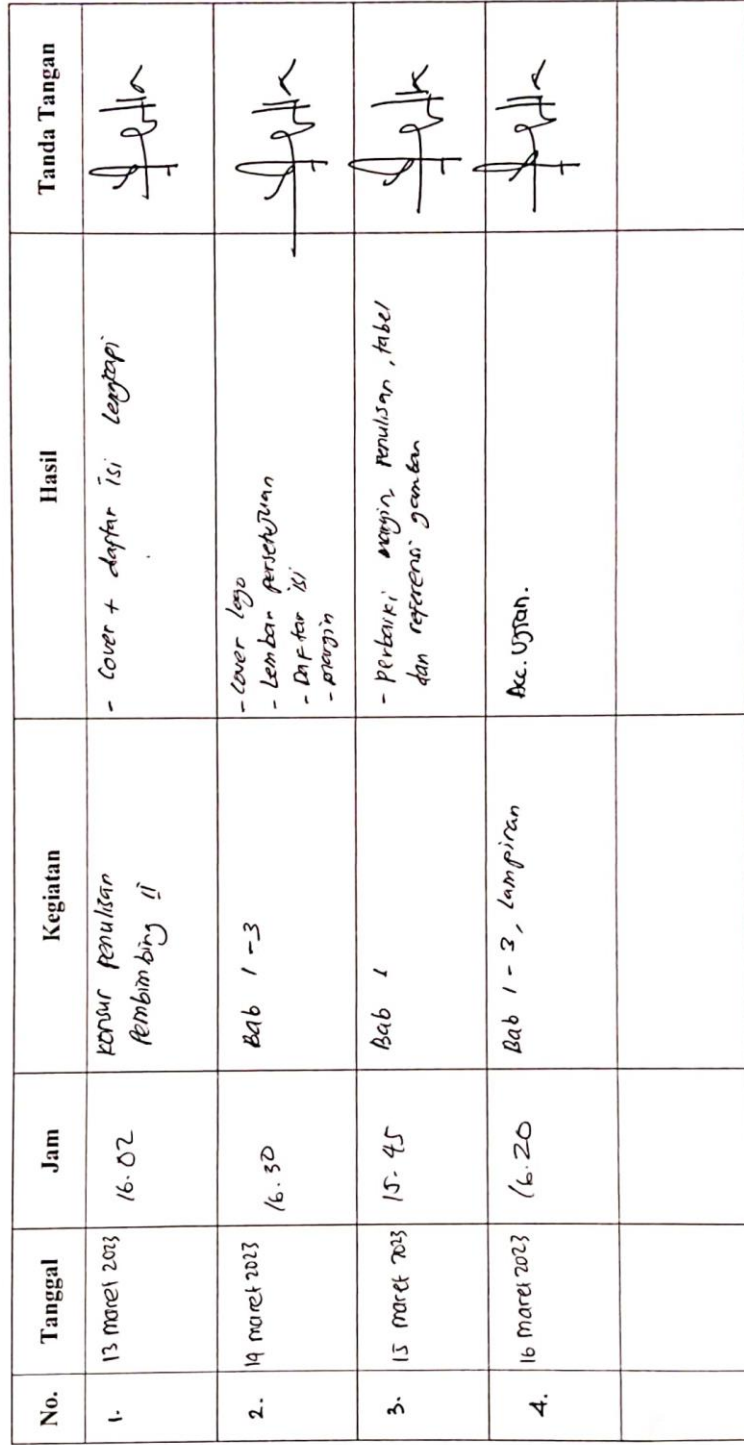 No. Tanggal Jam Kegiatan Hasil Tanda Tangan
1. 13 maret 2023 16.02 Konsul penulisan - Cover + daftar isi lengkapi
Pembimbing II
2. 14 maret 2023 16.30 Bab 1 - 3 - Cover logo
- Lembar persetujuan
- Daftar isi
- margin
3. 15 maret 2023 15.45 Bab 1 - Perbaiki margin, penulisan, tabel
dan referensi gambar
4. 16 maret 2023 16.20 Bab 1 - 3, Lampiran Acc. Ujian.